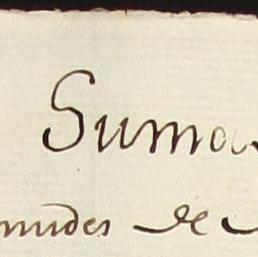 Suma
mudes de